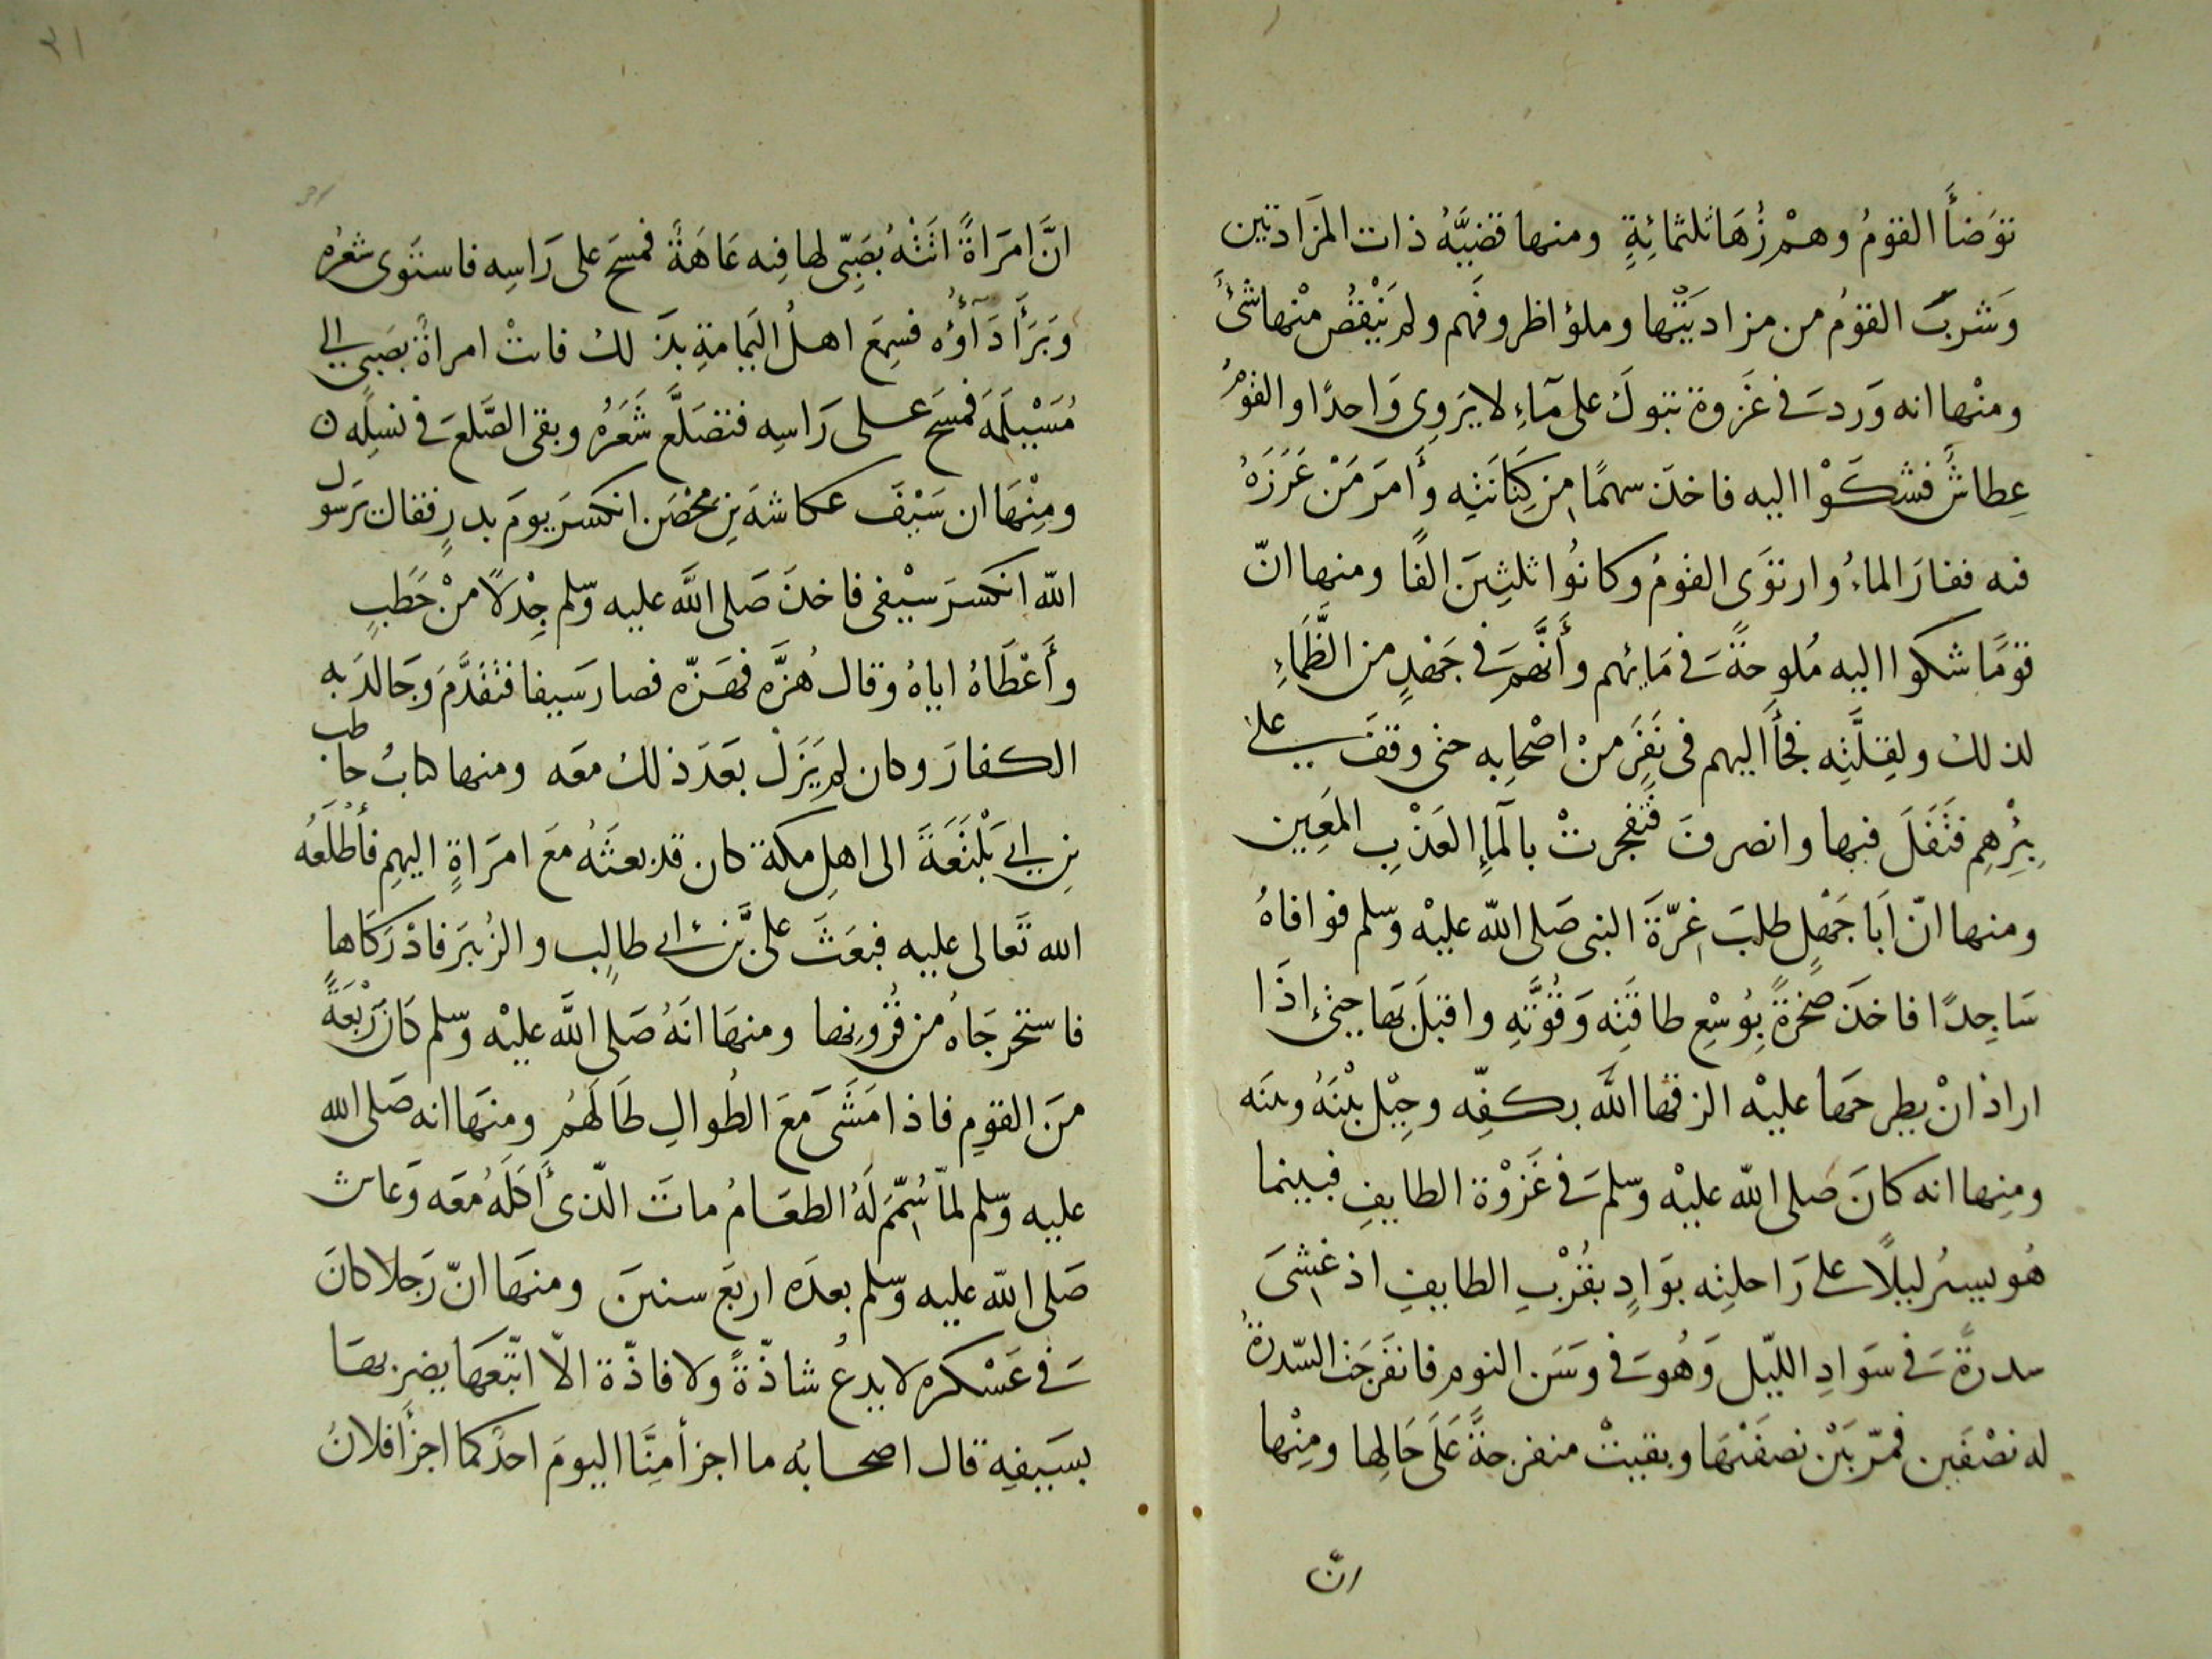 توَضأَ القومُ وهمْ زُهَا ثلثمائِةٍ ومنها قضيَّهُ ذات المزَادتين
وَشربَ القوْمُ من مزادتَيْها وملؤا ظروفَهم ولم يَنْقُصْ منْها شَئُ
ومنْها انه وَردَ فى غَزوة تبوكَ على مآءِ لا يَروِى وَاحدًا والقوْمُ
عِطاشٌ فشكَوْا اليه فاخذَ سهمًا مِن كِنَانَتِه وَأَمرَ مَنْ غَرَزَهُ
فيه ففارَ الماءُ وارتوَى القومُ وكانُوا ثلثِينَ الفًا ومنها انّ
قومًا شكوا اليه مُلوحةً فى مَائهم وأَنَّهمْ فى جَهْدٍ من الظَّمَاءِ
لذلك ولقِلَّتِه فجأَ اليهم فى نَفَرٍ منْ اصْحابِه حتى وقفَ على
بِئْرِهِم فتَفَلَ فيها وانصرفَ فتَفجرتْ بالمآءِ العَذْبِ المَعِين
ومنها انّ اَبَا جَهْلٍ طلبَ غِرّةَ النبى صَلى اللّه عليْه وَسّلم فوافاهُ
سَاجِدًا فاخذَ صَخْرةً بِوُسْعِ طاقَتِه وَقُوَّتِهِ واقبَلَ بهَا حتى إذَا
ارادَ انْ يطرحَها عليْه الزقها اللَّه بكفِّه وحِيْل بيْنَهُ وبينَه
ومنها انه كانَ صَلى اللّه عليْه وَسّلم فى غَزْوْة الطايِفِ فبينما
هُو يسيرُ ليلًا على رَاحلتِه بوَادٍ بقُرْبِ الطايِفِ اذ غشِىَ
سدرةً فى سَوَادِ اللّيل وَهُوَ فى وَسَن النوم فانفَرجَت السّدرةُ
له نصْفَين فمّر بَيْن نصفَيْهَا وبقيتْ منفرجةً عَلَى حَالِها ومِنْها
انّ
انَّ امرَاةً اتَتْهُ بصَبِىّ لها فيه عَاهَةٌ فمسَحَ على رَاسِه فاستَوى شعرُه
وَبَرَأَ دَآؤُه فسِمعَ اهلُ اليَمامةِ بذَلك فاتتْ امراةٌ بصَبى الى
مُسَيْلَمَةَ فمسَحَ على رَاسِه فتصَلَّعَ شَعَرُهُ وبقى الصَّلعَ فى نسلِه ن
ومِنْهَا ان سَيْفَ عكاشهَ بنِ محْصَن انكسرَ يومَ بدرٍ فقال يَرسول
اللّه انكسرَ سيْفى فاخذَ صَلى اللَّه عليه وَسّلم جِذْلًا منْ حَطبٍ
وأَعْطَاهُ اياهُ وقالَ هُزَّه فهَزّه فصارَ سَيفا فتقَدَّمَ وَجَالدَ به
الكفارَ وكان لم يَزَلْ بعَدَ ذلك معَه ومنها كتابُ حاطب
بنِ ابى بَلْتَعَةَ الى اهلِ مكة كان قد بعثَهُ معَ امرَاةٍ اليهِم فأَطْلَعَهُ
الله تَعالى عليه فبعَثَ علىَّ بنَ ابى طالِب والزُبيرَ فادْرَكاها
فاستخرجَاهُ من قُرُونِها ومنهَا انَهُ صَلى اللَّه عليْه وَسّلم كَانَ رَبْعَةً
منَ القومِ فاذا مَشَى مَعَ الطُوالِ طَالَهُم ومنهَا انه صَلى الله
عليه وَسّلم لمّا سُمِّمَ لَهُ الطعَامُ ماتَ الّذى أَكَلَهُ معَه وَعاش
صَلى اللّه عليه وَسّلم بعدَه اربَع سنينَ ومنهَا انّ رَجلا كانَ
فى عَسْكره لا يدعُ شاذّةً ولا فاذّة الاّ اتبّعَها يضربها
بسَيفِهِ قال اصحابُه ما اجزأ مِنَّا اليومَ احدٌ كما اجزأَ فلانٌ
31
٣١